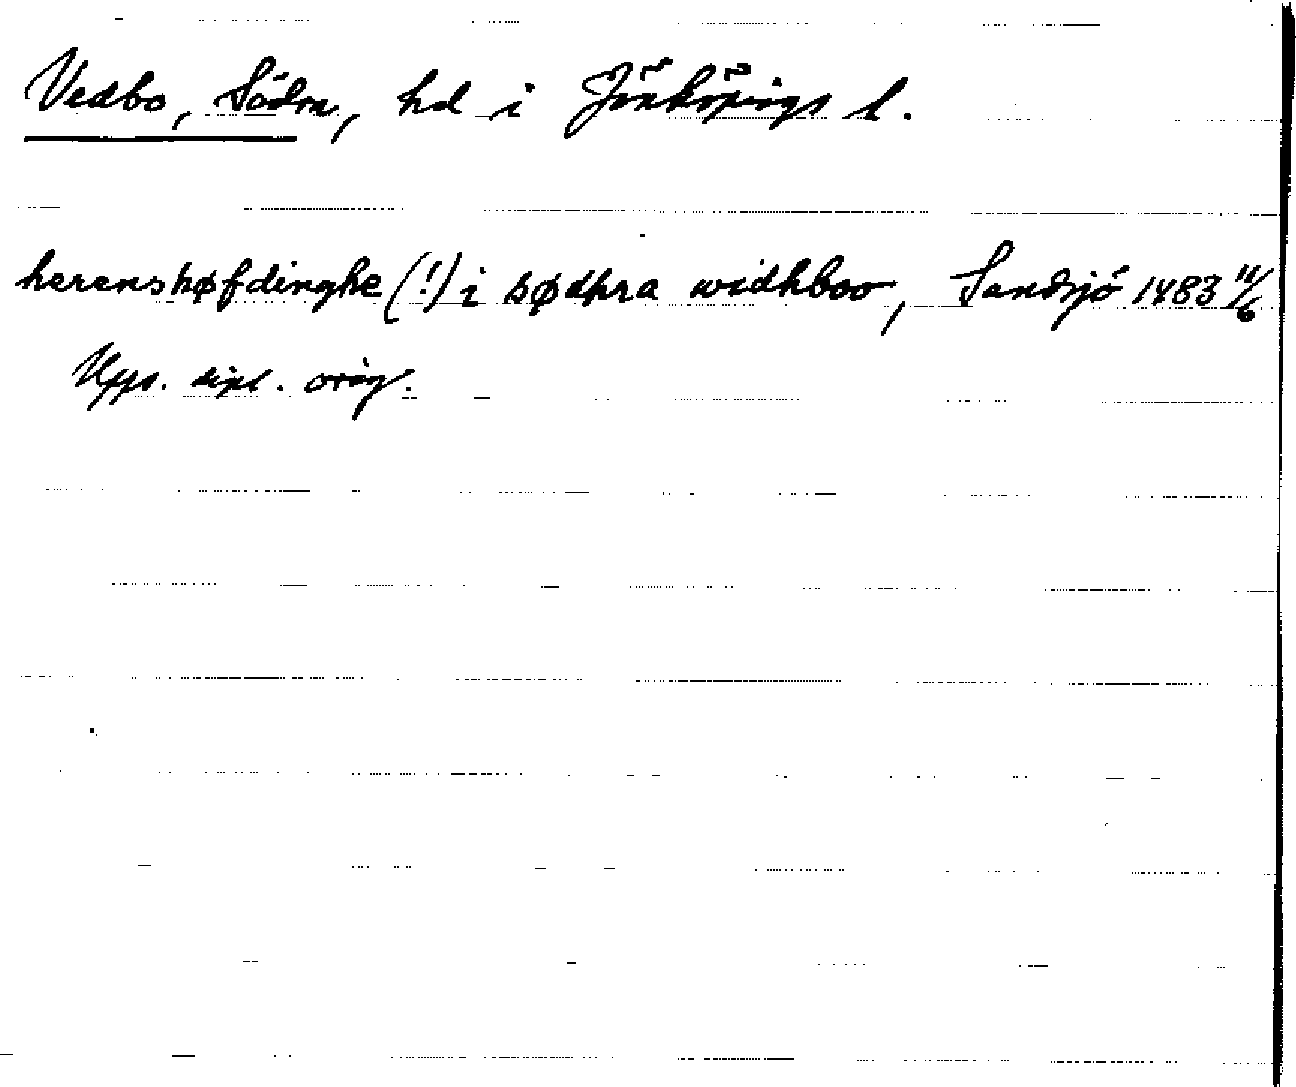 Vedbo, Södra, hd i Jönköpings l.
herenshøfdinghe (!) i sødhra widhboo, Sandsjö 1483 11/6
Upps. dipl. orig.